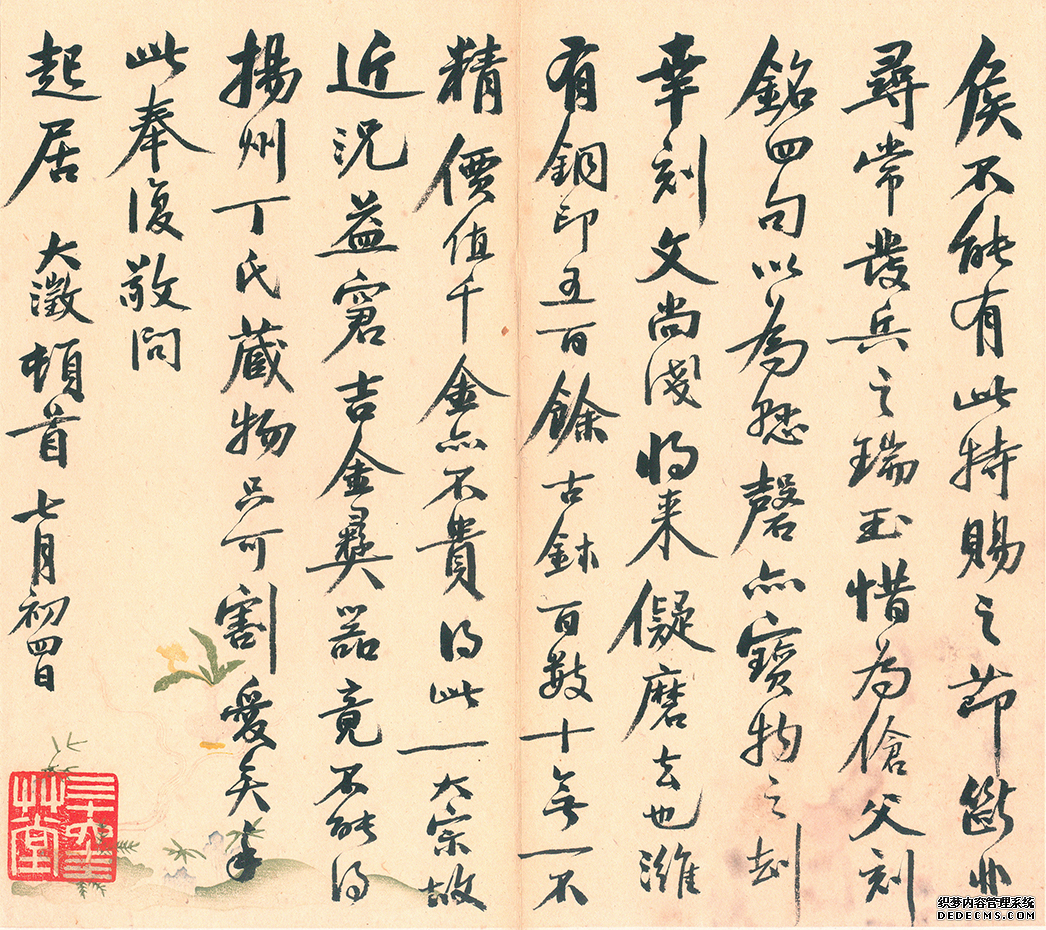 侯不能有此特賜之節斷非
尋常發兵之瑞玉惜為傖父刻
銘四句以為懸磬亦寶物之刦
幸刻文尚淺將来儗磨去也濰
有銅印五百餘古鉥百數十無一不
精價值千金亦不貴得此一大宗故
近況益窘吉金彝器竟不能得
揚州丁氏藏物只可割愛矣手
此奉復敬問
起居 大澂頓首 七月初四日
三大圭艸堂
织梦内容管理系统
DEDECMS.COM